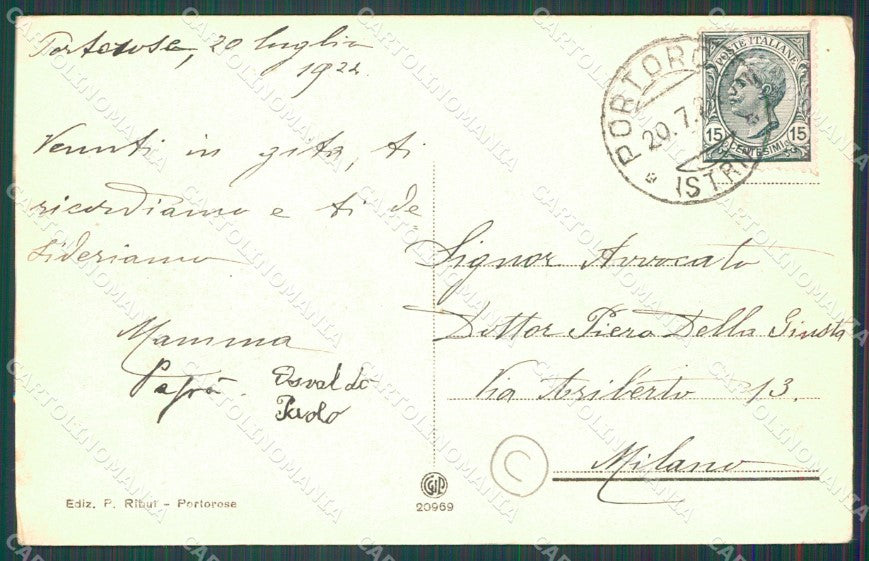 Portorose, 20 luglio
1922.
Venuti in gita, ti
ricordiamo e ti de
sideriamo
Mamma
Papà.
Osvaldo
Paolo
Signor Avvocato
Dottor Piero Della Giusta
Via Ariberto 13.
Milano
PORTORO
20.7.2
ISTRI
POSTE ITALIANE
15 15
CENTESIMI
C
Ediz. P. Ribul - Portorose
CGIP
20969
CARTOLINOMANIA